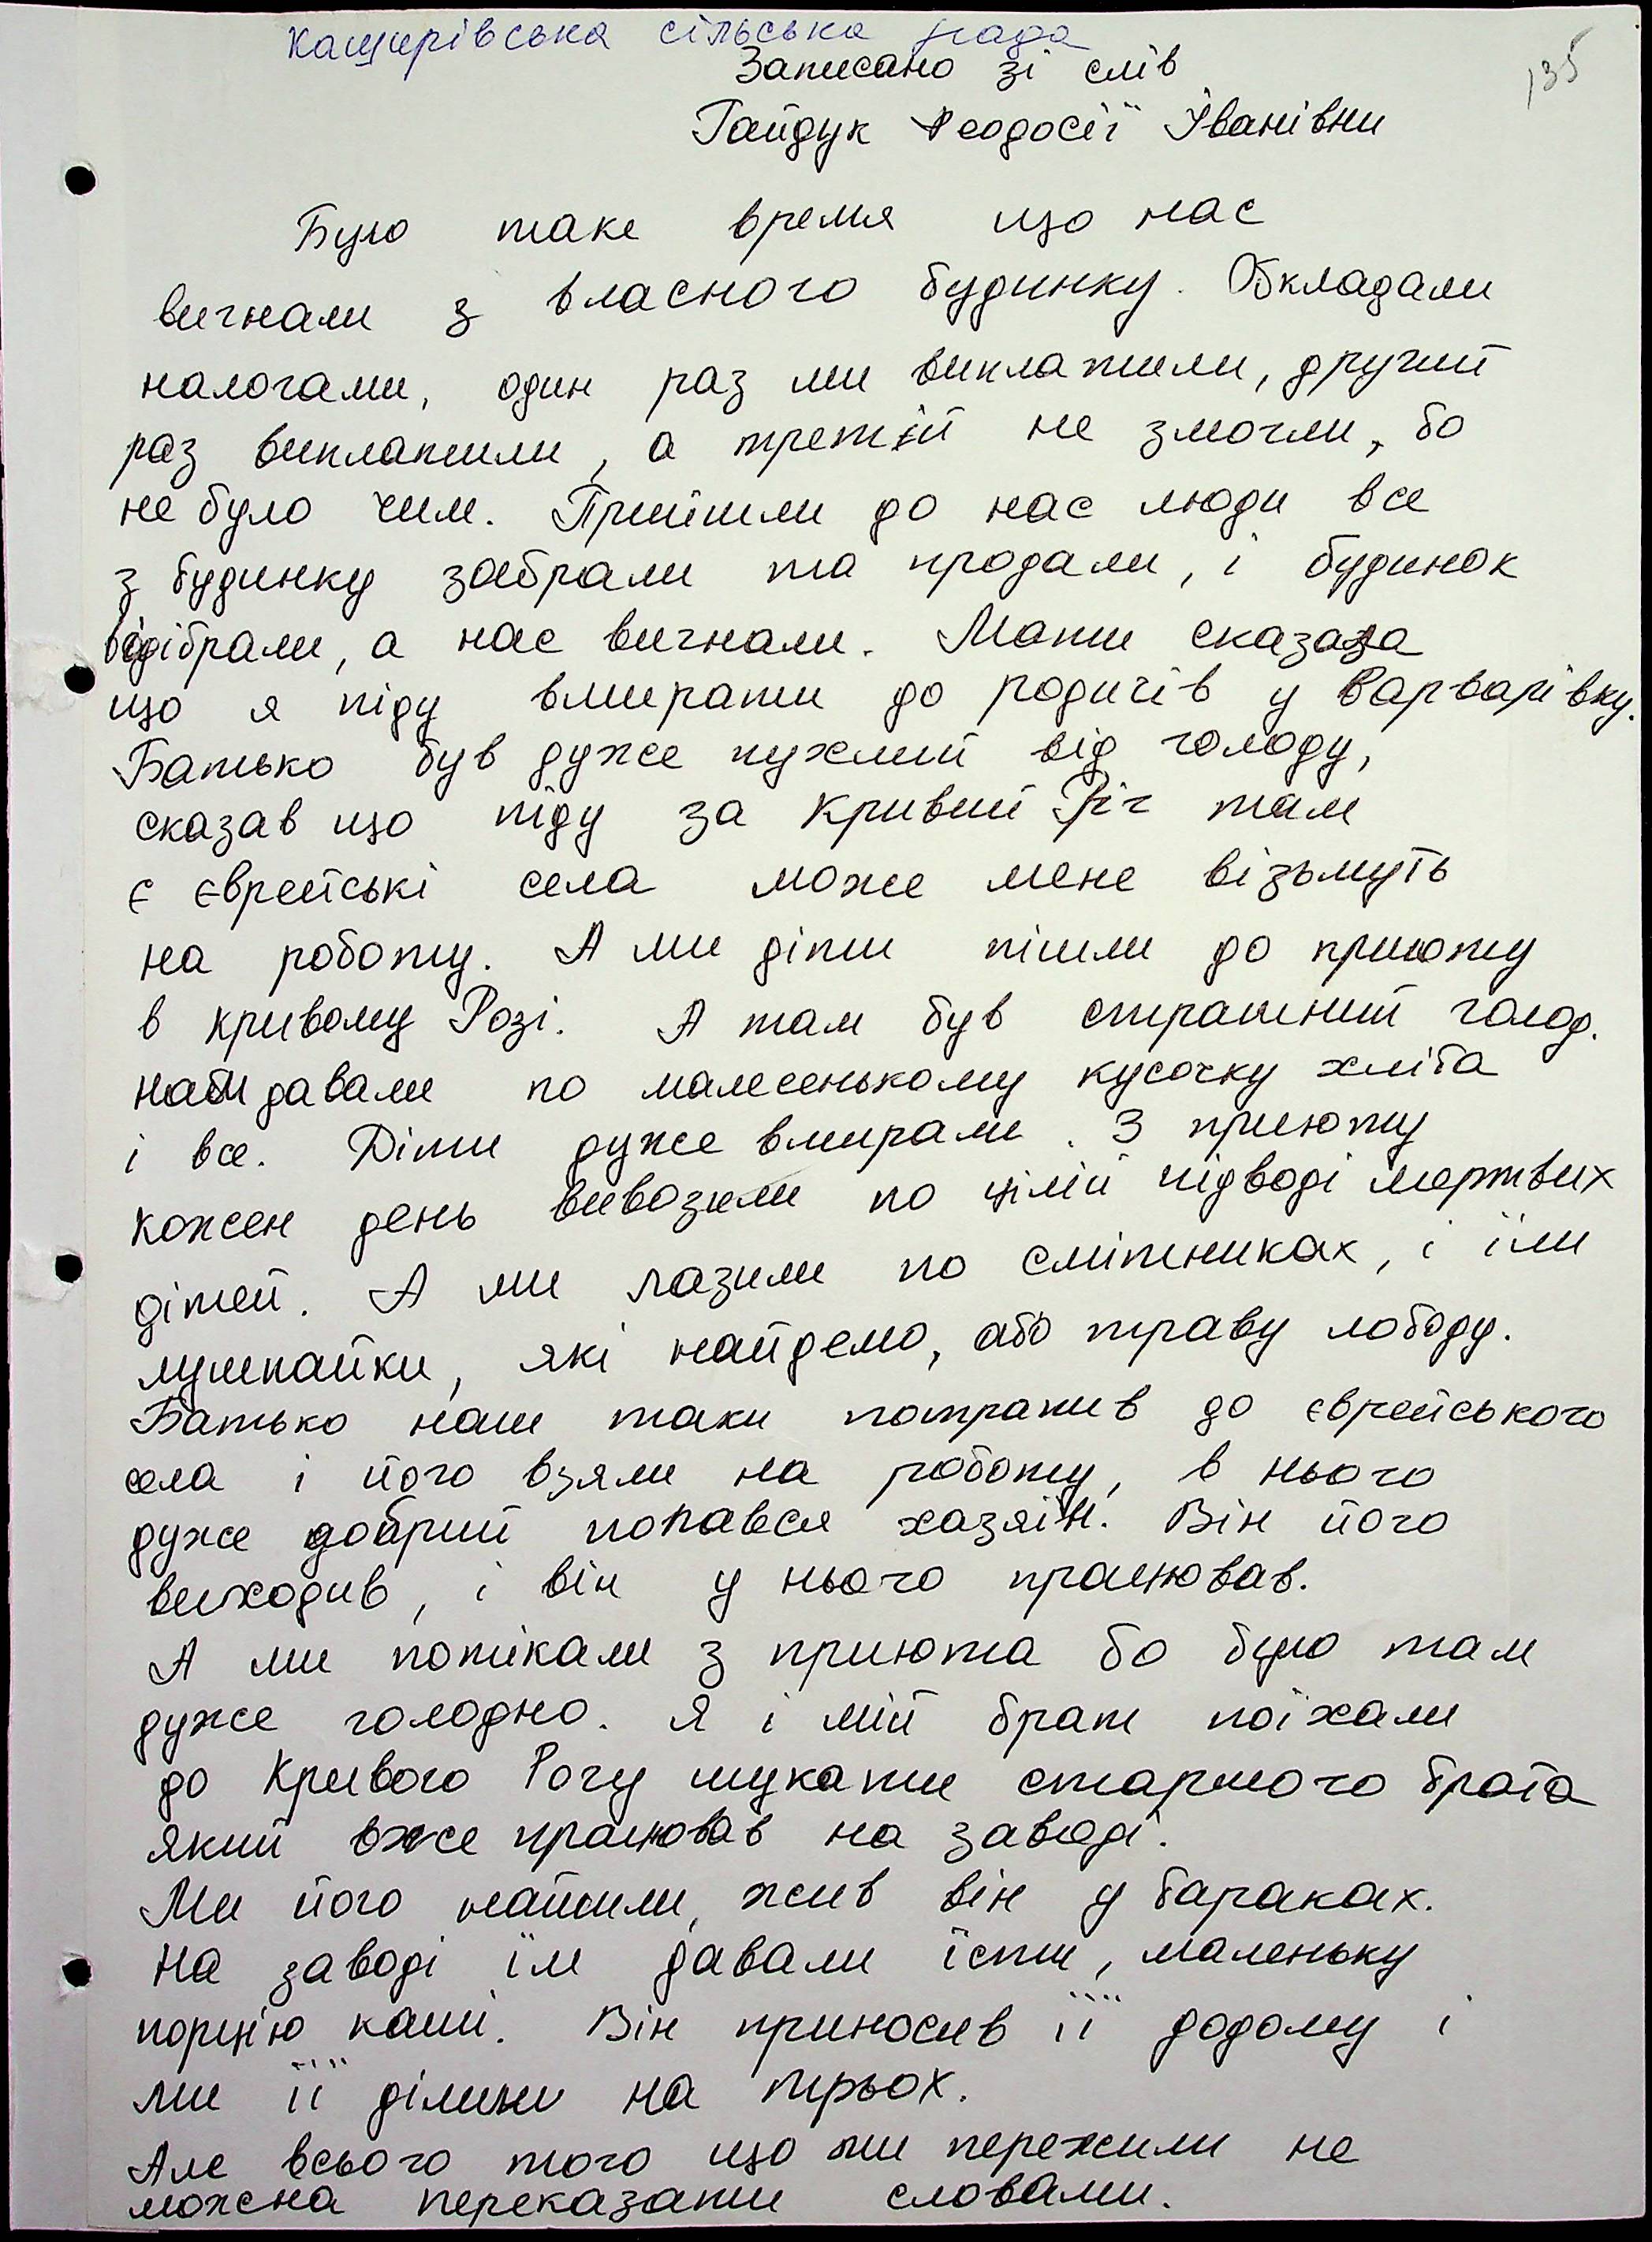 Кащирівська сільська рада
135
Записано зі слів
Гайдук Феодосії Іванівни
Було таке время що нас
вигнали з власного будинку. Обкладали
налогами, один раз ми виплатили, другий
раз виплатили, а третій не змогли, бо
не було чим. Прийшли до нас люди все
з будинку забрали та продали, і будинок
відібрали, а нас вигнали. Мати сказала
що я піду вмирати до родичів у Варварівку.
Батько був дуже пухлий від голоду,
сказав що піду за Кривий Ріг там
є єврейські села може мене візьмуть
на роботу. А ми діти пішли до приюту
в Кривому Розі. А там був страшний голод.
нам давали по малесенькому кусочку хліба
і все. Діти дуже вмирали. З приюту
кожен день вивозили по цілій підводі мертвих
дітей. А ми лазили по смітниках, і їли
лушпайки, які найдемо, або траву лободу.
Батько наш таки потрапив до єврейського
села і його взяли на роботу, в нього
дуже добрий попався хазяїн. Він його
виходив, і він у нього працював.
А ми потікали з приюта бо було там
дуже голодно. Я і мій брат поїхали
до Кривого Рогу шукати старшого брата
який вже працював на заводі.
Ми його найшли, жив він у бараках.
На заводі їм давали їсти, маленьку
порцію каші. Він приносив її додому і
ми її ділили на трьох.
Але всього того що ми пережили не
можна переказати словами.